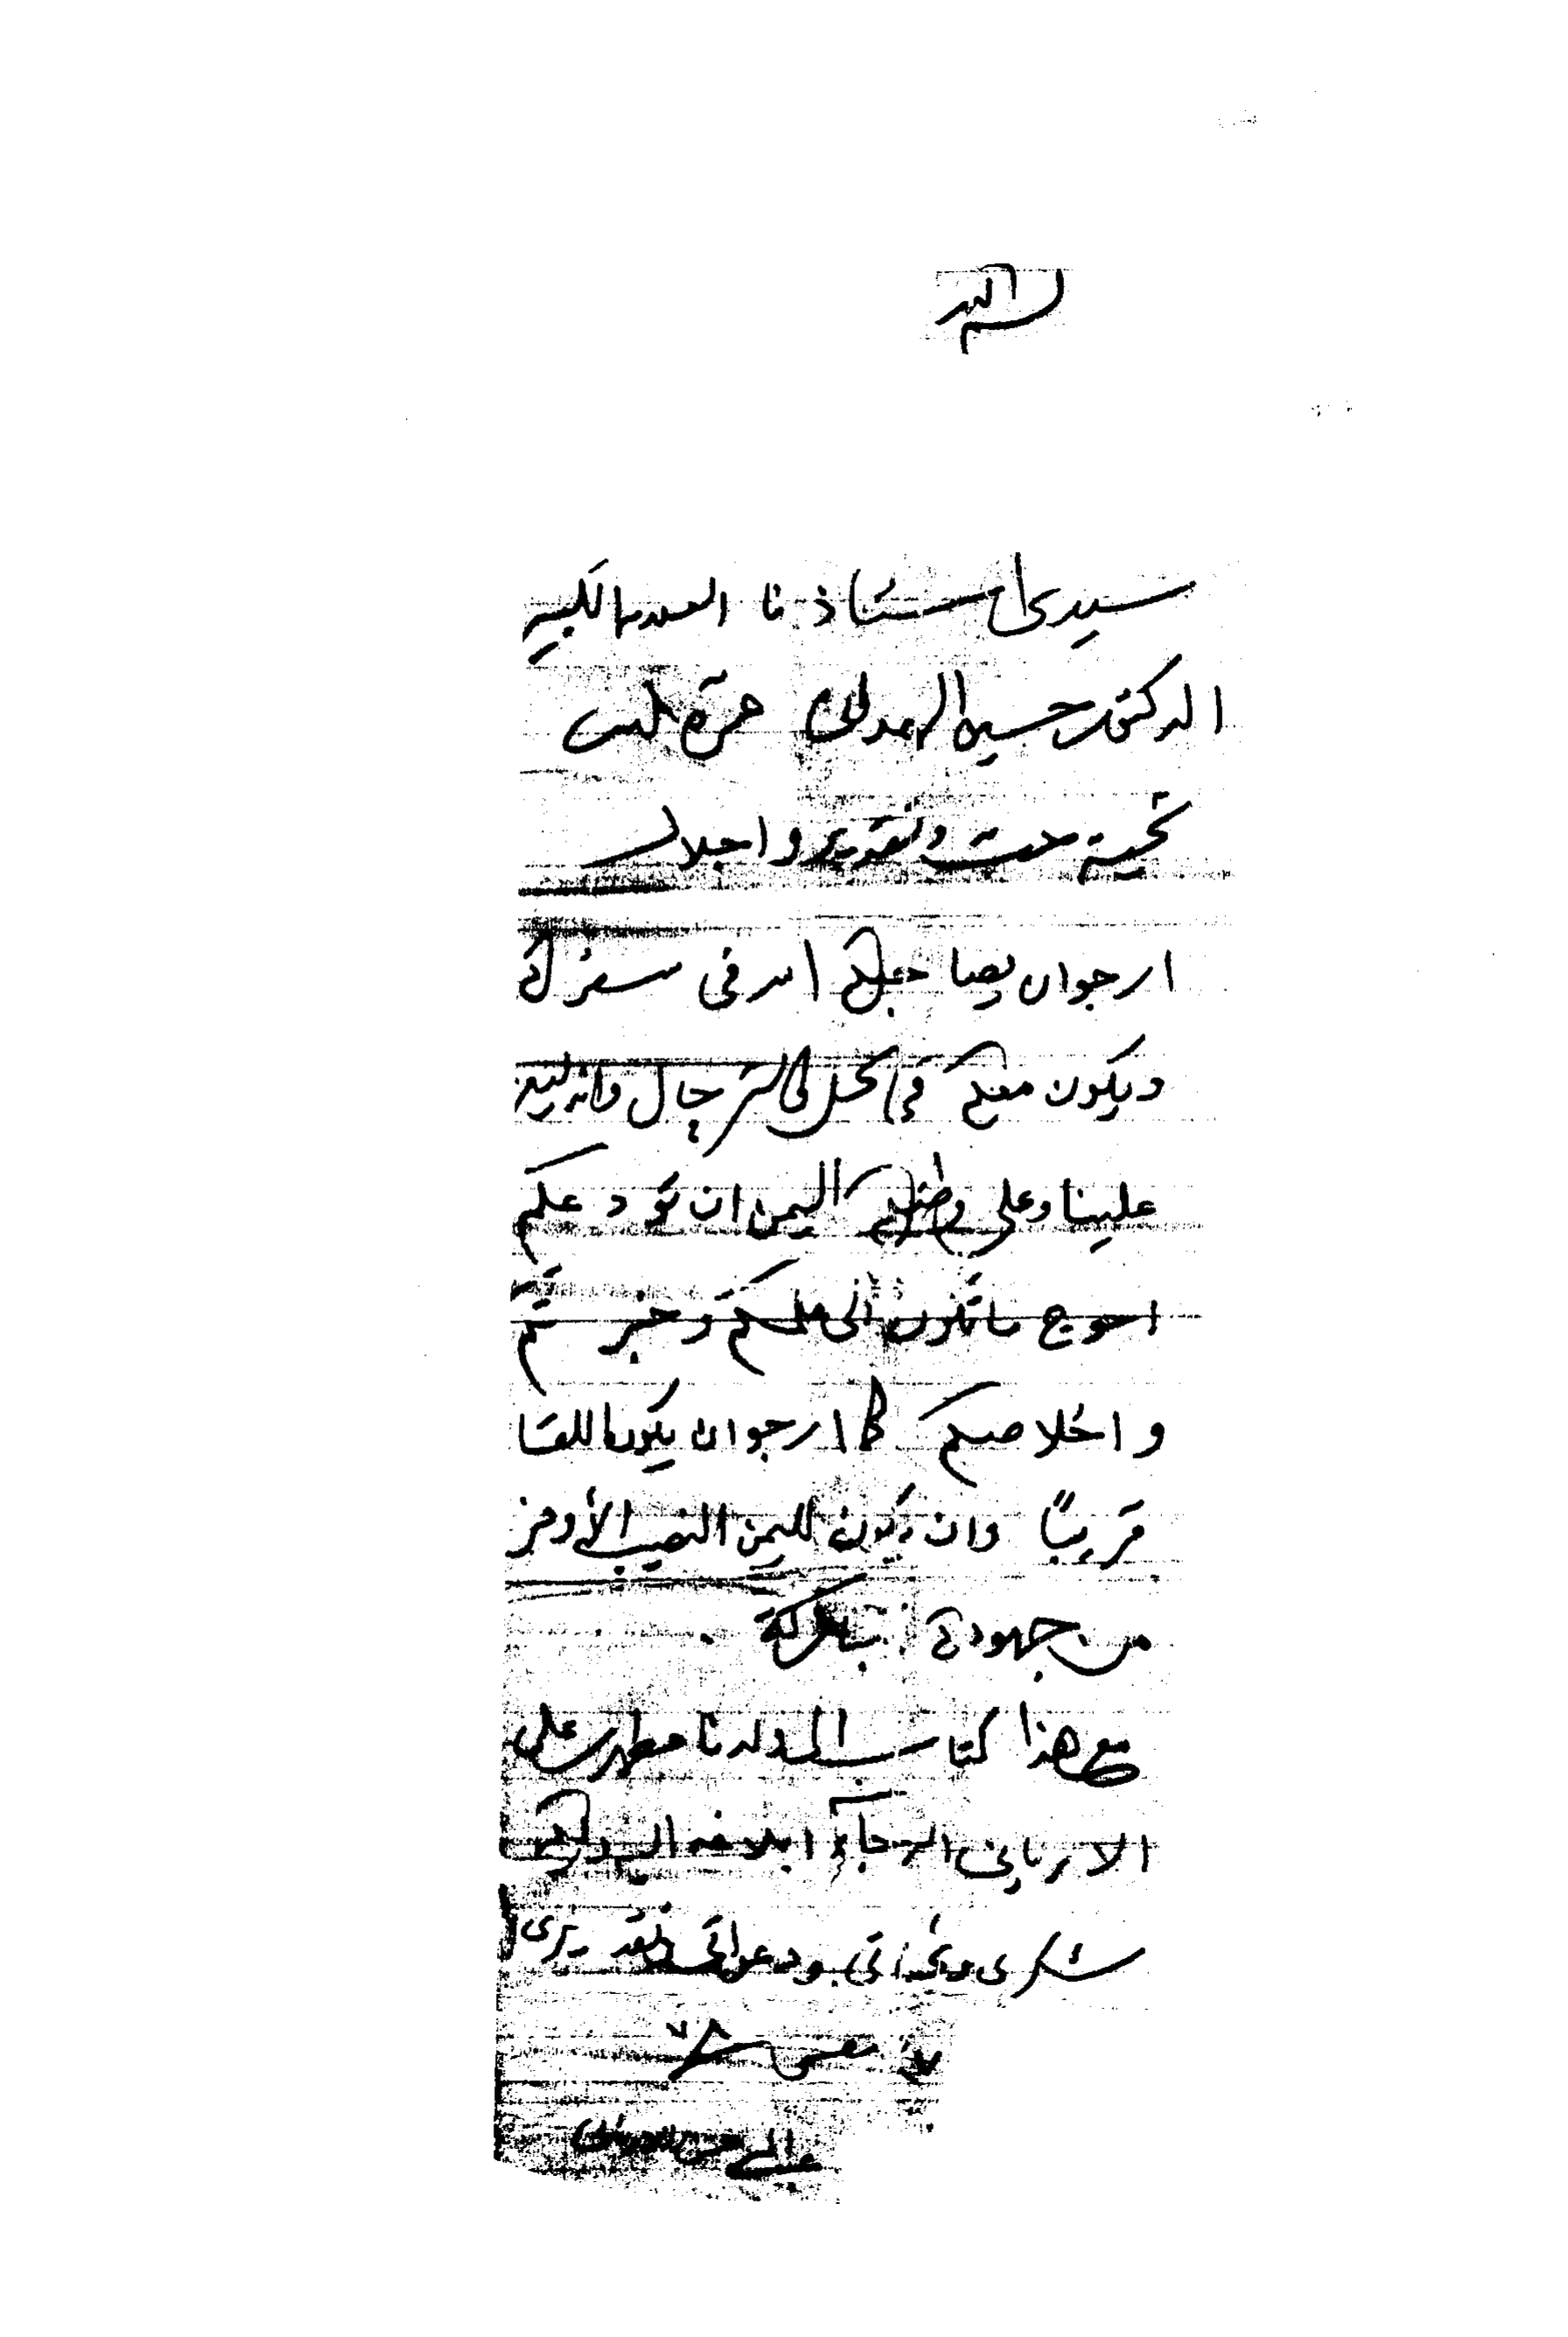 بسم الله
سيدي استاذنا العلامة الكبير
الدكتور حسين الهمداني حرسه الله
تحية حب وتقدير واجلال
ارجو ان يصاحبكم الله في سفركم
ويكون معكم في الحل والترحال وانه ليعز
علينا وعلى وطنكم اليمن ان نودعكم
احوج ما نكون الى علمكم وخبرتكم
واخلاصكم كما ارجو ان يكون اللقا
قريباً وان يكون لليمن النصيب الأوفر
من جهودكم المباركة .
مع هذا كتاب الى ولدنا مطهر علي
الارياني الرجآء ابلاغه اليه ولكم
شكري وتحياتي ودعواتي وتقديري